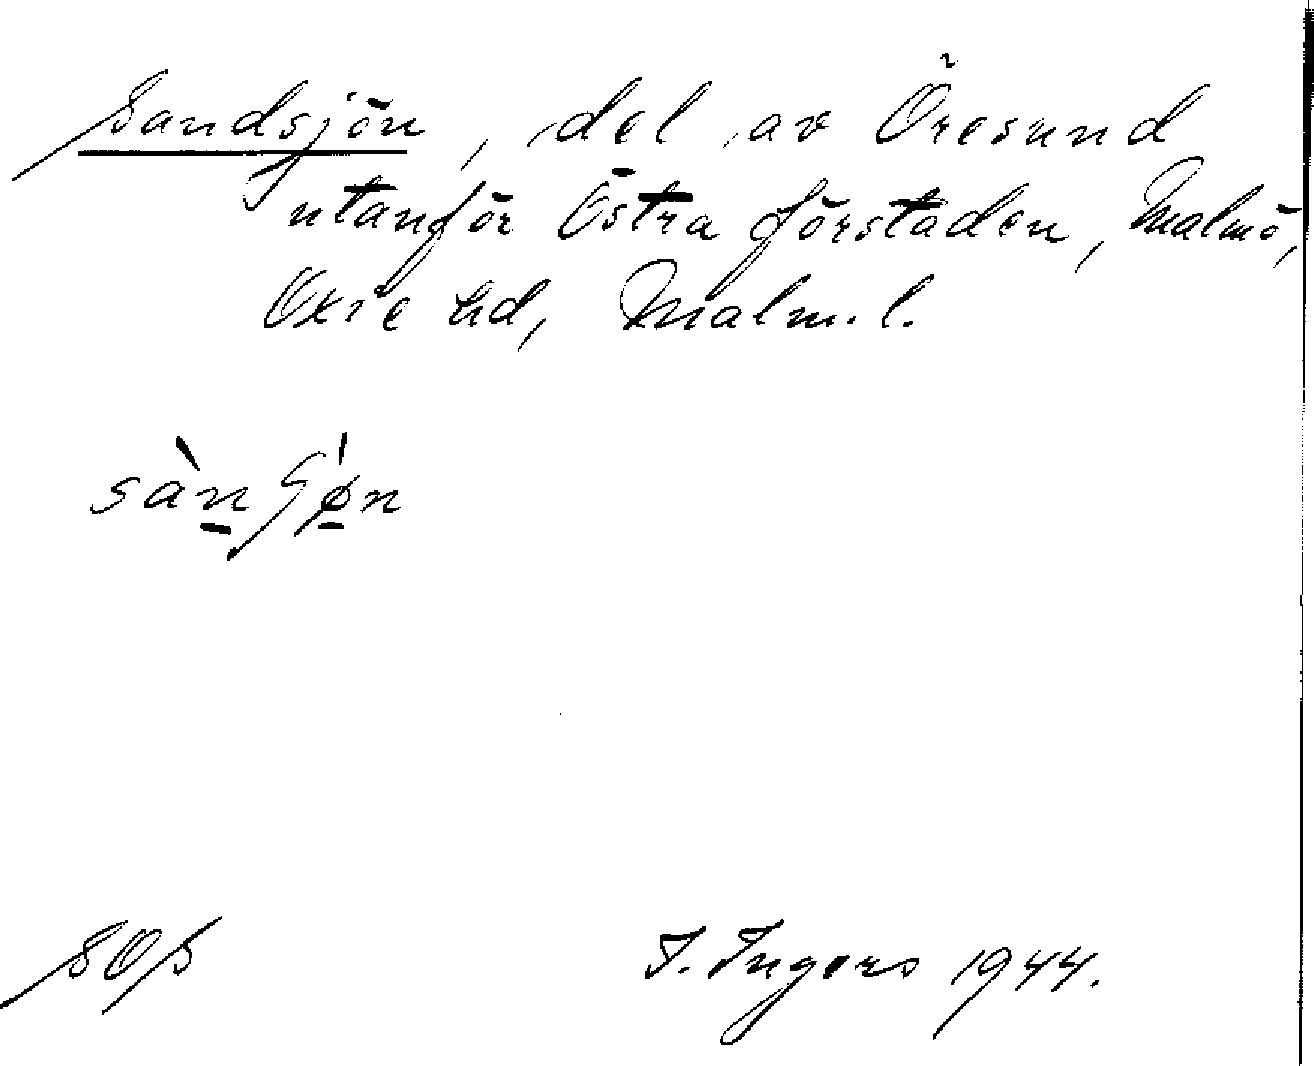 Sandsjön, del av Öresund
utanför Östra förstaden, Malmö,
Oxie hd, Malm. l.
SOS
I. Ingers 1944.